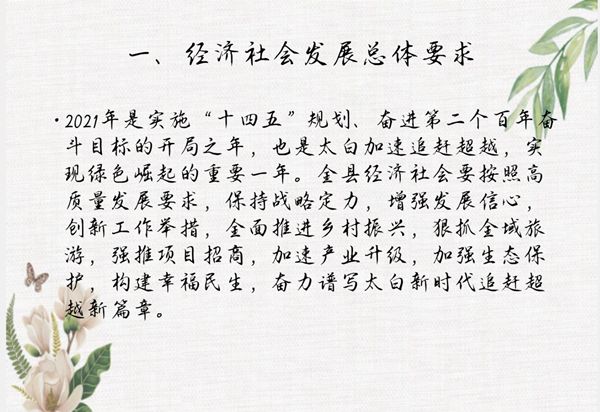 一、经济社会发展总体要求
•2021年是实施“十四五”规划、奋进第二个百年奋
斗目标的开局之年，也是太白加速追赶超越，实
现绿色崛起的重要一年。全县经济社会要按照高
质量发展要求，保持战略定力，增强发展信心，
创新工作举措，全面推进乡村振兴，狠抓全域旅
游，强推项目招商，加速产业升级，加强生态保
护，构建幸福民生，奋力谱写太白新时代追赶超
越新篇章。